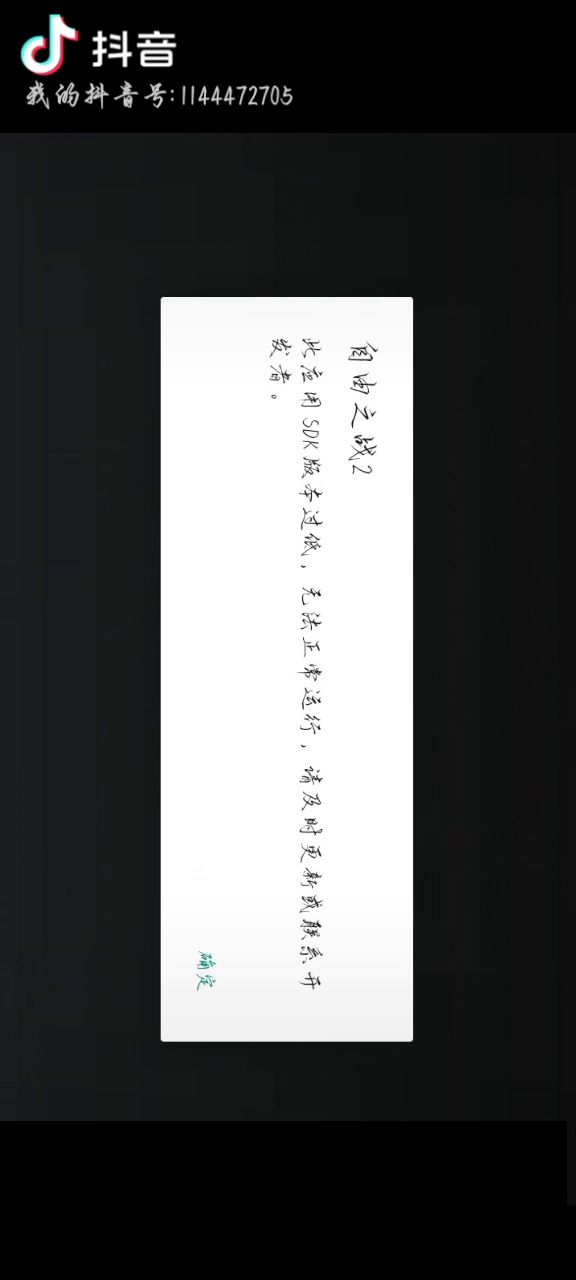 抖音
我的抖音号:1144472705
自由之战2
此应用SDK版本过低，无法正常运行，请及时更新或联系开
发者。
确定